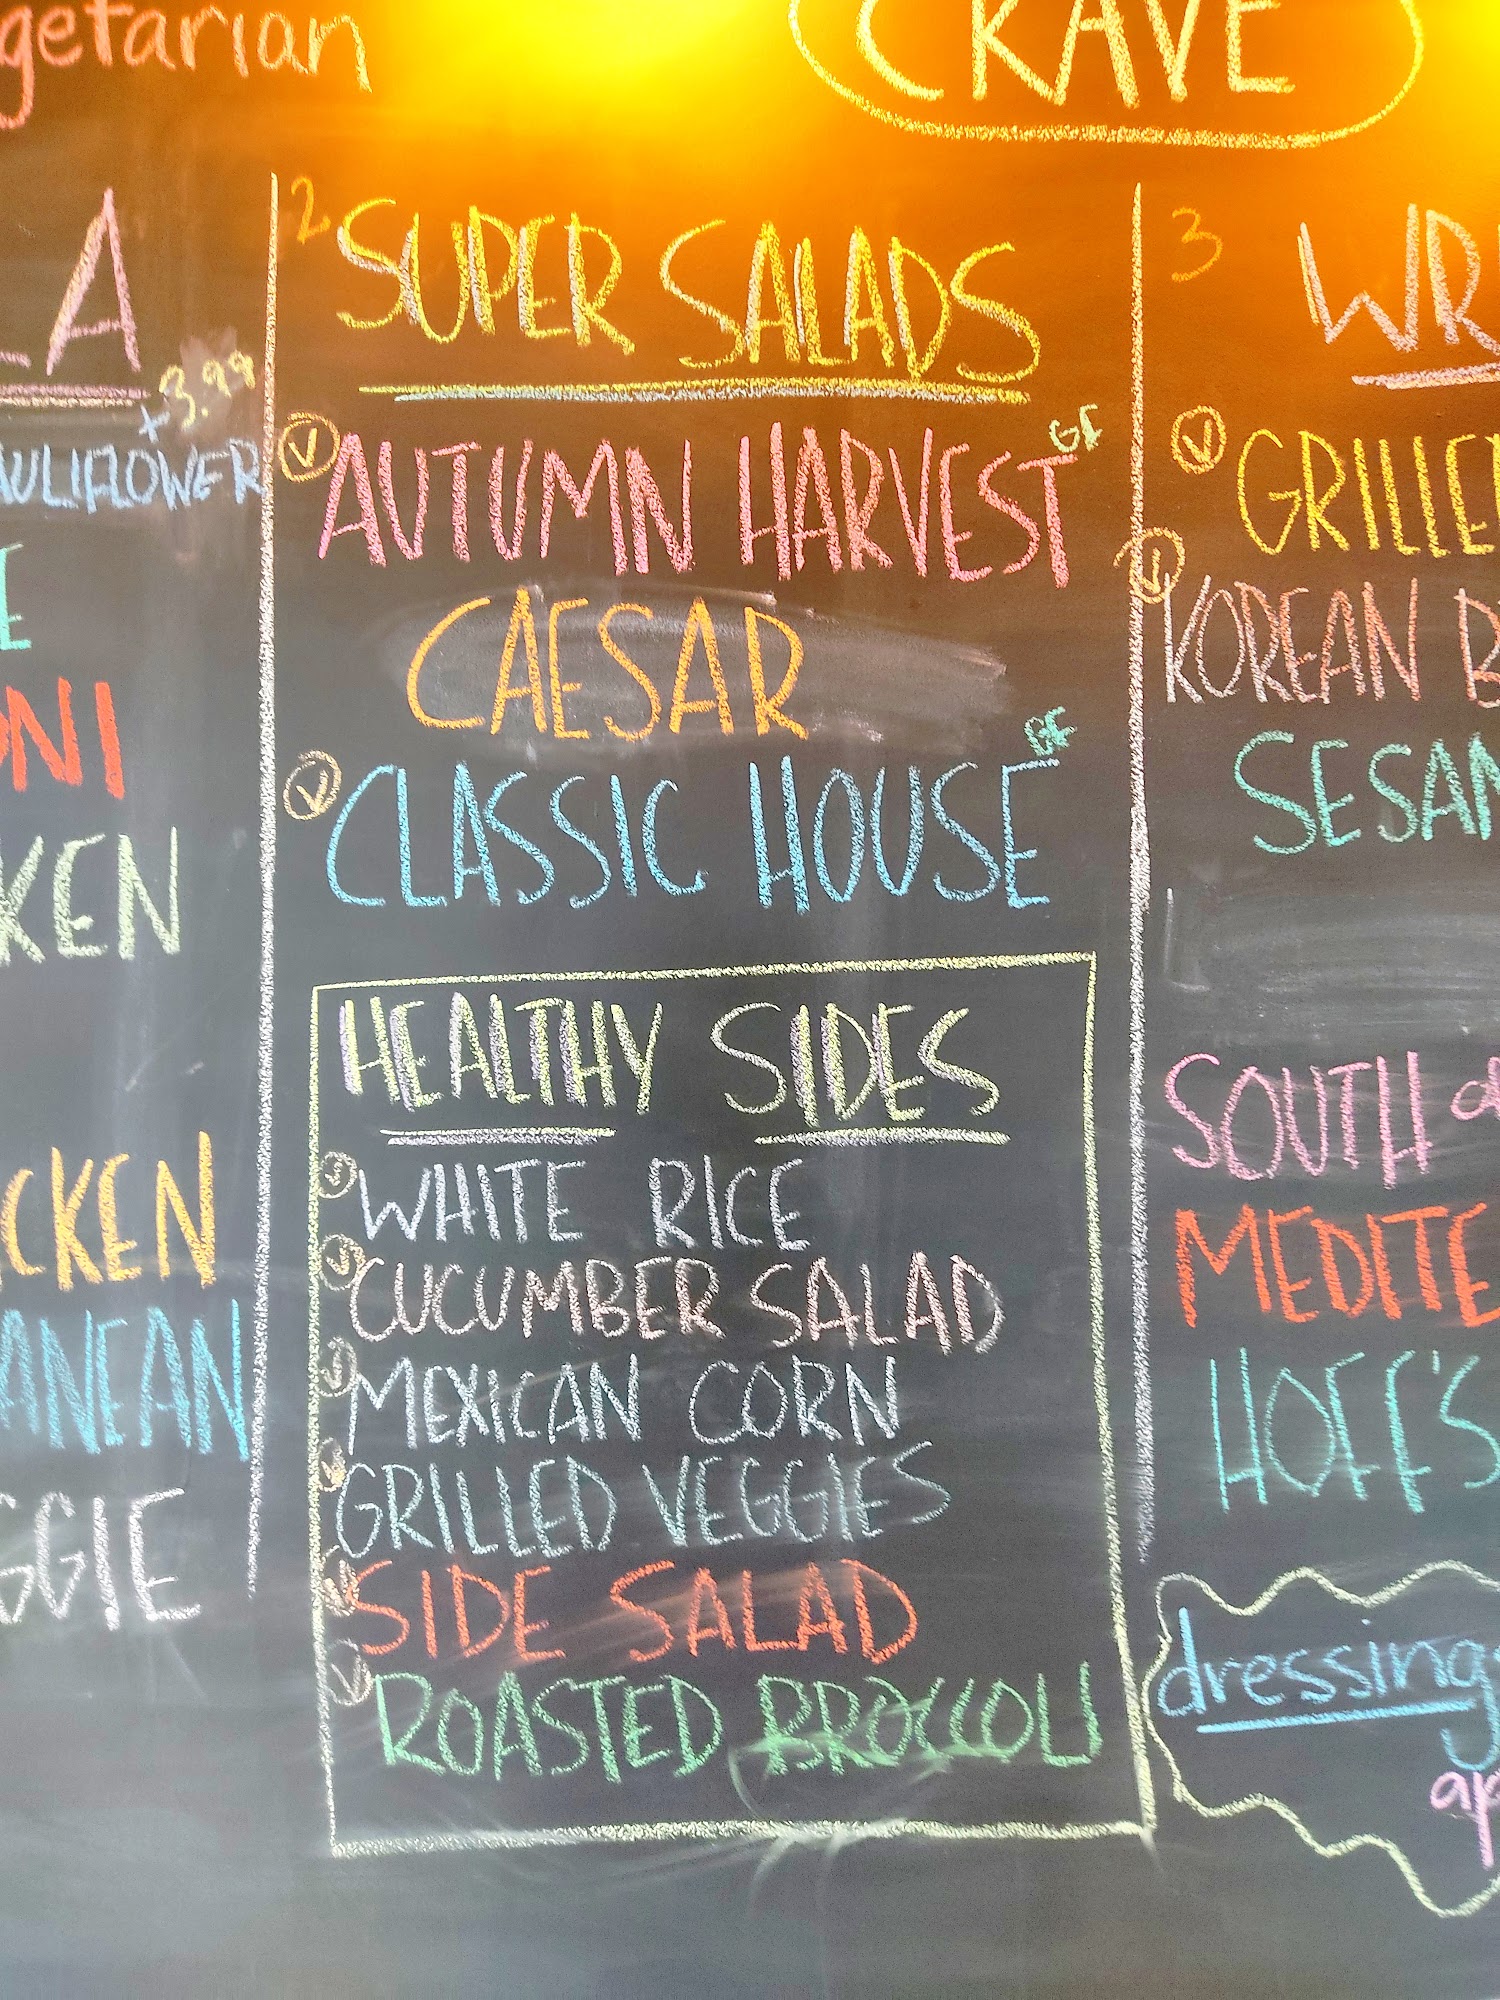 getarian
CRAVE
LA
+3.99
AULIFLOWER
E
ONI
KEN
CKEN
ANEAN
GGIE
2 SUPER SALADS
V AUTUMN HARVEST GF
CAESAR
V CLASSIC HOUSE GF
HEALTHY SIDES
V WHITE RICE
V CUCUMBER SALAD
V MEXICAN CORN
V GRILLED VEGGIES
V SIDE SALAD
V ROASTED BROCCOLI
3 WR
V GRILLE
V KOREAN B
SESAM
SOUTH
MEDITE
HOFF'S
dressing
ap